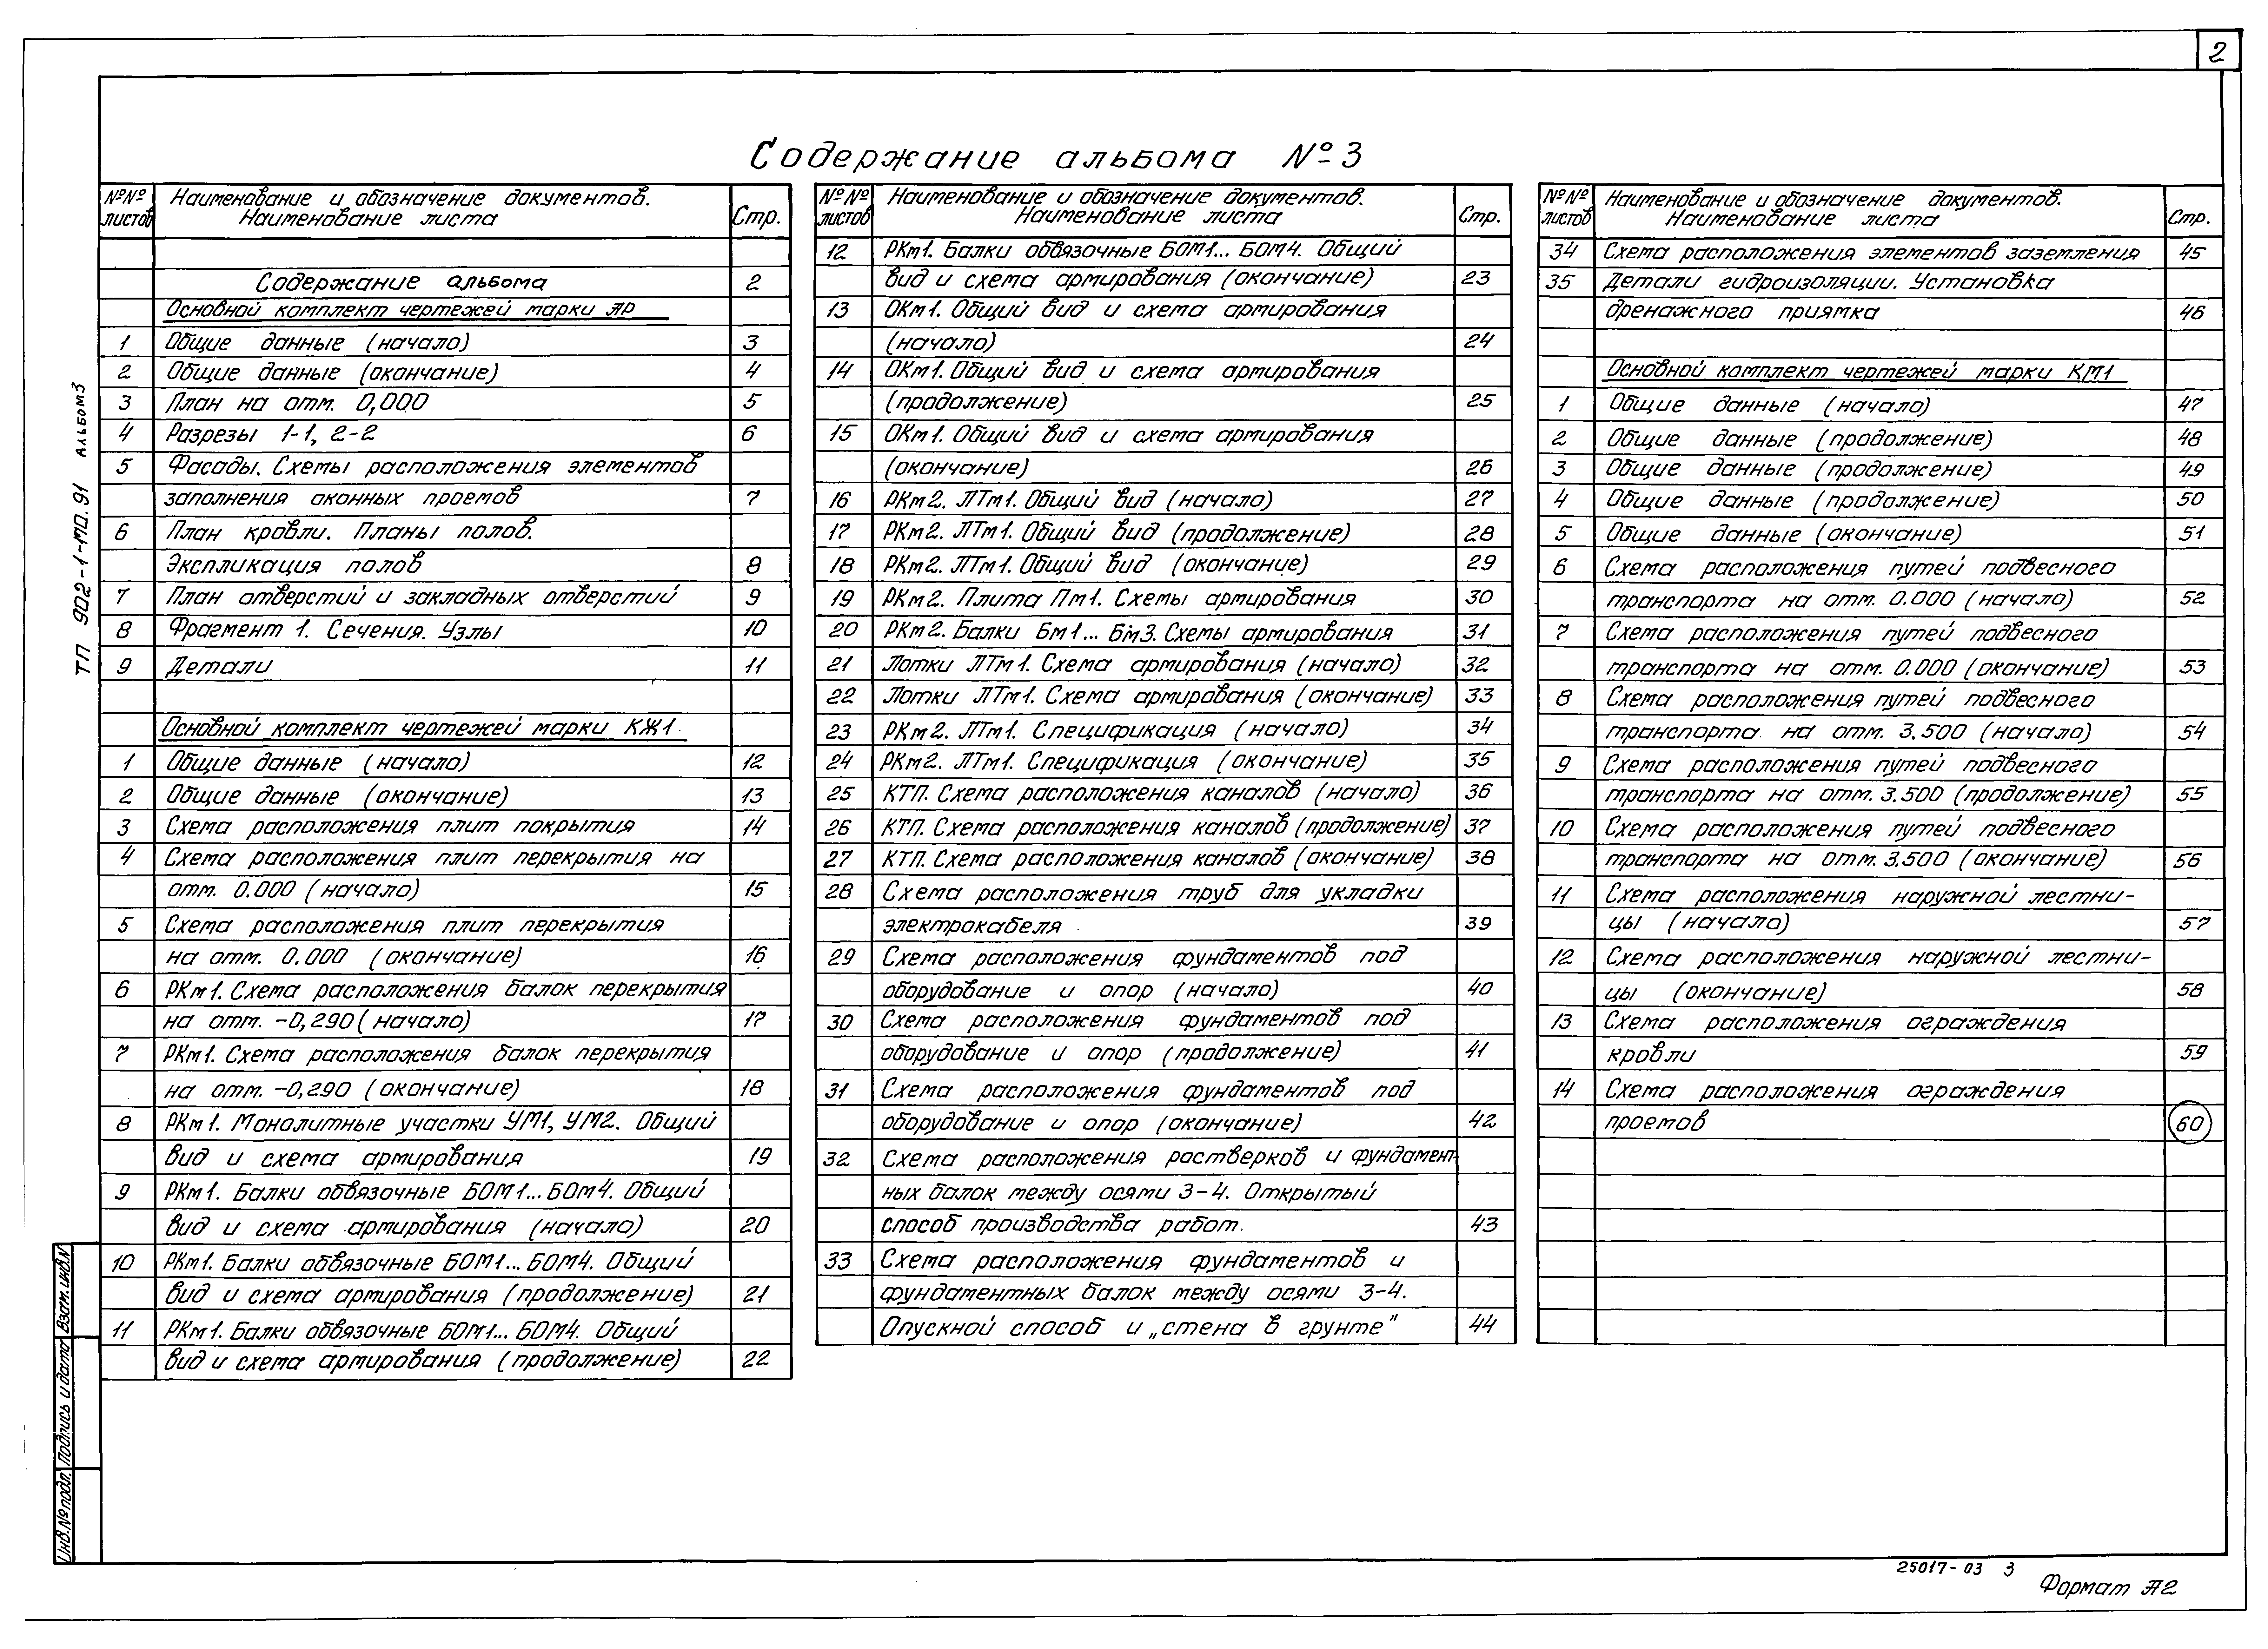 2
Содержание альбома №3
№№ листов
Наименование и обозначение документов.
Наименование листа
Стр.
Содержание альбома 2
Основной комплект чертежей марки АР
1 Общие данные (начало) 3
2 Общие данные (окончание) 4
3 План на отм. 0,000 5
4 Разрезы 1-1, 2-2 6
5 Фасады. Схемы расположения элементов
заполнения оконных проемов 7
6 План кровли. Планы полов.
Экспликация полов 8
7 План отверстий и закладных отверстий 9
8 Фрагмент 1. Сечения. Узлы 10
9 Детали 11
Основной комплект чертежей марки КЖ1
1 Общие данные (начало) 12
2 Общие данные (окончание) 13
3 Схема расположения плит покрытия 14
4 Схема расположения плит перекрытия на
отм. 0.000 (начало) 15
5 Схема расположения плит перекрытия
на отм. 0.000 (окончание) 16
6 РКм1. Схема расположения балок перекрытия
на отм. -0,290 (начало) 17
7 РКм1. Схема расположения балок перекрытия
на отм. -0,290 (окончание) 18
8 РКм1. Монолитные участки УМ1, УМ2. Общий
вид и схема армирования 19
9 РКм1. Балки обвязочные БОМ1...БОм4. Общий
вид и схема армирования (начало) 20
10 РКм1. Балки обвязочные БОМ1...БОМ4. Общий
вид и схема армирования (продолжение) 21
11 РКм1. Балки обвязочные БОМ1...БОМ4. Общий
вид и схема армирования (продолжение) 22
№№ листов
Наименование и обозначение документов.
Наименование листа
Стр.
12 РКм1. Балки обвязочные БОМ1...БОМ4. Общий
вид и схема армирования (окончание) 23
13 ОКм1. Общий вид и схема армирования
(начало) 24
14 ОКм1. Общий вид и схема армирования
(продолжение) 25
15 ОКм1. Общий вид и схема армирования
(окончание) 26
16 РКм2. ЛТм1. Общий вид (начало) 27
17 РКм2. ЛТм1. Общий вид (продолжение) 28
18 РКм2. ЛТм1. Общий вид (окончание) 29
19 РКм2. Плита Пм1. Схемы армирования 30
20 РКм2. Балки Бм1...Бм3. Схемы армирования 31
21 Лотки ЛТм1. Схема армирования (начало) 32
22 Лотки ЛТм1. Схема армирования (окончание) 33
23 РКм2. ЛТм1. Спецификация (начало) 34
24 РКм2. ЛТм1. Спецификация (окончание) 35
25 КТП. Схема расположения каналов (начало) 36
26 КТП. Схема расположения каналов (продолжение) 37
27 КТП. Схема расположения каналов (окончание) 38
28 Схема расположения труб для укладки
электрокабеля 39
29 Схема расположения фундаментов под
оборудование и опор (начало) 40
30 Схема расположения фундаментов под
оборудование и опор (продолжение) 41
31 Схема расположения фундаментов под
оборудование и опор (окончание) 42
32 Схема расположения ростверков и фундамент-
ных балок между осями 3-4. Открытый
способ производства работ. 43
33 Схема расположения фундаментов и
фундаментных балок между осями 3-4.
Опускной способ и „стена в грунте" 44
№№ листов
Наименование и обозначение документов.
Наименование листа
Стр.
34 Схема расположения элементов заземления 45
35 Детали гидроизоляции. Установка
дренажного приямка 46
Основной комплект чертежей марки КМ1
1 Общие данные (начало) 47
2 Общие данные (продолжение) 48
3 Общие данные (продолжение) 49
4 Общие данные (продолжение) 50
5 Общие данные (окончание) 51
6 Схема расположения путей подвесного
транспорта на отм. 0.000 (начало) 52
7 Схема расположения путей подвесного
транспорта на отм. 0.000 (окончание) 53
8 Схема расположения путей подвесного
транспорта на отм. 3.500 (начало) 54
9 Схема расположения путей подвесного
транспорта на отм. 3.500 (продолжение) 55
10 Схема расположения путей подвесного
транспорта на отм. 3.500 (окончание) 56
11 Схема расположения наружной лестни-
цы (начало) 57
12 Схема расположения наружной лестни-
цы (окончание) 58
13 Схема расположения ограждения
кровли 59
14 Схема расположения ограждения
проемов 60
ТП 902-1-170.91 АЛЬБОМ 3
Взам. инв.N
Подпись и дата
Инв.№подл.
25017-03 3
Формат А2